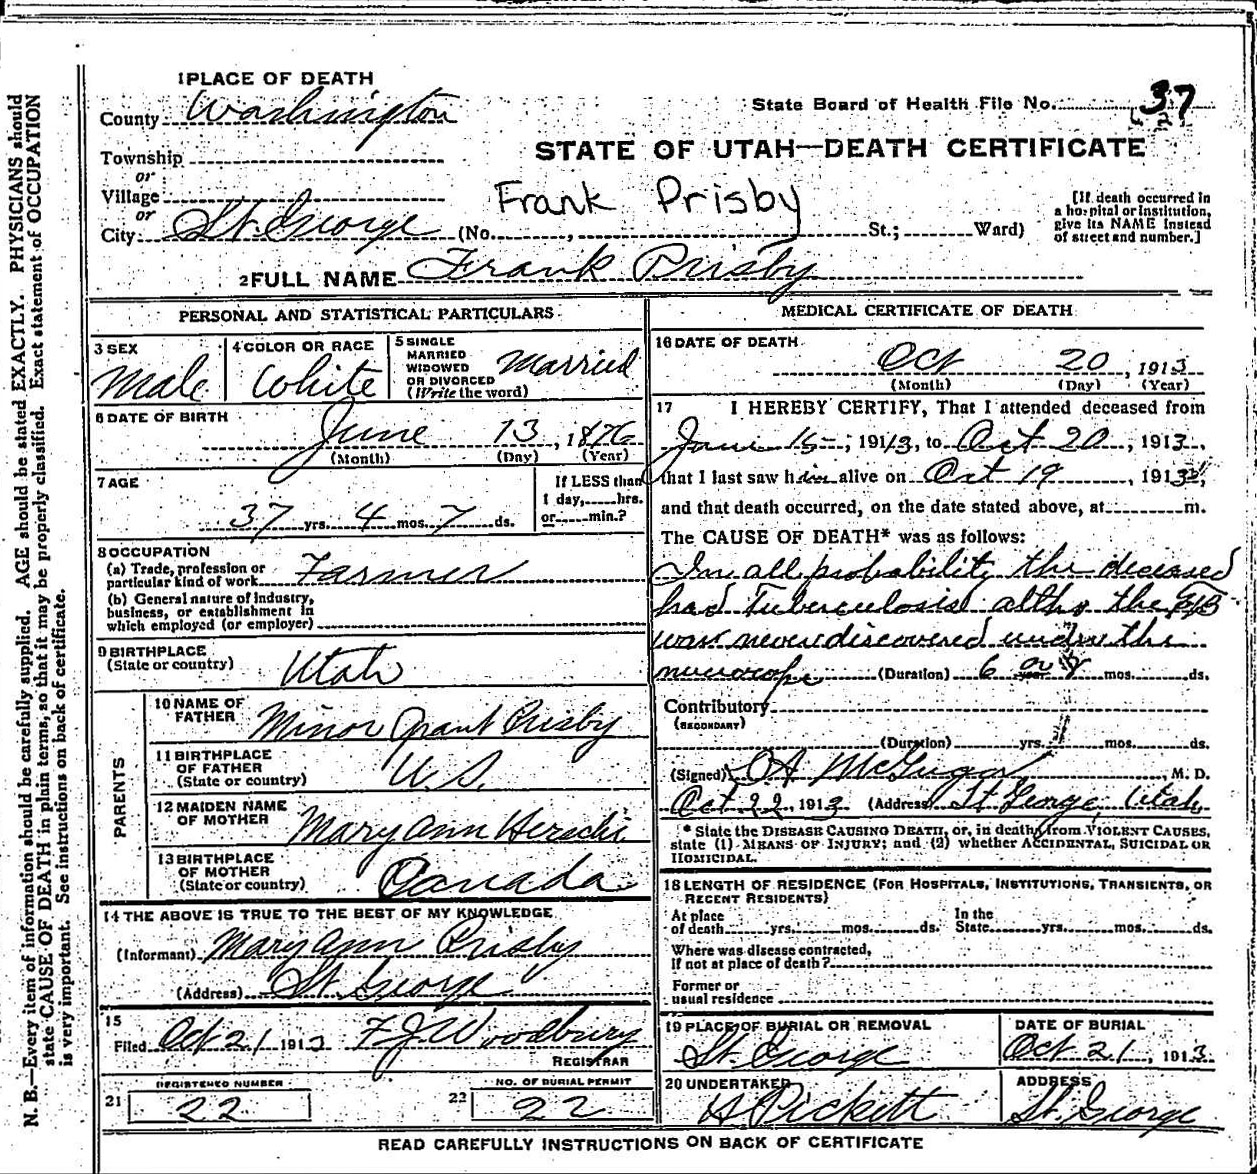 N. B.—Every item of information should be carefully supplied. AGE should be stated EXACTLY. PHYSICIANS should
state CAUSE OF DEATH in plain terms, so that it may be properly classified. Exact statement of OCCUPATION
is very important. See instructions on back of certificate.
1 PLACE OF DEATH
County Washington
State Board of Health File No. 37
Township
or
Village
or
City St. George
STATE OF UTAH—DEATH CERTIFICATE
Frank Prisby
(No. , St.; Ward)
[If death occurred in
a hospital or institution,
give its NAME instead
of street and number.]
2 FULL NAME Frank Prisby
PERSONAL AND STATISTICAL PARTICULARS
3 SEX
Male
4 COLOR OR RACE
White
5 SINGLE
MARRIED
WIDOWED
OR DIVORCED
(Write the word)
Married
6 DATE OF BIRTH
June 13, 1876
(Month) (Day) (Year)
7 AGE
37 yrs. 4 mos. 7 ds.
If LESS than
1 day, hrs.
or min.?
8 OCCUPATION
(a) Trade, profession or
particular kind of work Farmer
(b) General nature of industry,
business, or establishment in
which employed (or employer)
9 BIRTHPLACE
(State or country) Utah
PARENTS
10 NAME OF
FATHER Minor Grant Prisby
11 BIRTHPLACE
OF FATHER
(State or country) U.S.
12 MAIDEN NAME
OF MOTHER Mary Ann Herschi
13 BIRTHPLACE
OF MOTHER
(State or country) Canada
14 THE ABOVE IS TRUE TO THE BEST OF MY KNOWLEDGE
(Informant) Mary Ann Prisby
(Address) St. George
15
Filed Oct 21 1913 F J Woodbury
REGISTRAR
REGISTERED NUMBER
21 22
NO. OF BURIAL PERMIT
22 22
MEDICAL CERTIFICATE OF DEATH
16 DATE OF DEATH
Oct 20, 1913
(Month) (Day) (Year)
17 I HEREBY CERTIFY, That I attended deceased from
15, 1913, to Oct 20, 1913,
that I last saw him alive on Oct 19, 1913,
and that death occurred, on the date stated above, at m.
The CAUSE OF DEATH* was as follows:
In all probability the deceased
had Tuberculosis altho the TB
was never discovered under the
microscope (Duration) 6 or 8 mos. ds.
Contributory
(SECONDARY)
(Duration) yrs. mos. ds.
(Signed) McGregor, M. D.
Oct 22, 1913 (Address) St George, Utah
* State the DISEASE CAUSING DEATH, or, in deaths from VIOLENT CAUSES,
state (1) MEANS OF INJURY; and (2) whether ACCIDENTAL, SUICIDAL OR
HOMICIDAL.
18 LENGTH OF RESIDENCE (FOR HOSPITALS, INSTITUTIONS, TRANSIENTS, OR
RECENT RESIDENTS)
At place
of death yrs. mos. ds.
In the
State yrs. mos. ds.
Where was disease contracted,
If not at place of death?
Former or
usual residence
19 PLACE OF BURIAL OR REMOVAL
St. George
DATE OF BURIAL
Oct 21, 1913
20 UNDERTAKER
Pickett
ADDRESS
St George
READ CAREFULLY INSTRUCTIONS ON BACK OF CERTIFICATE